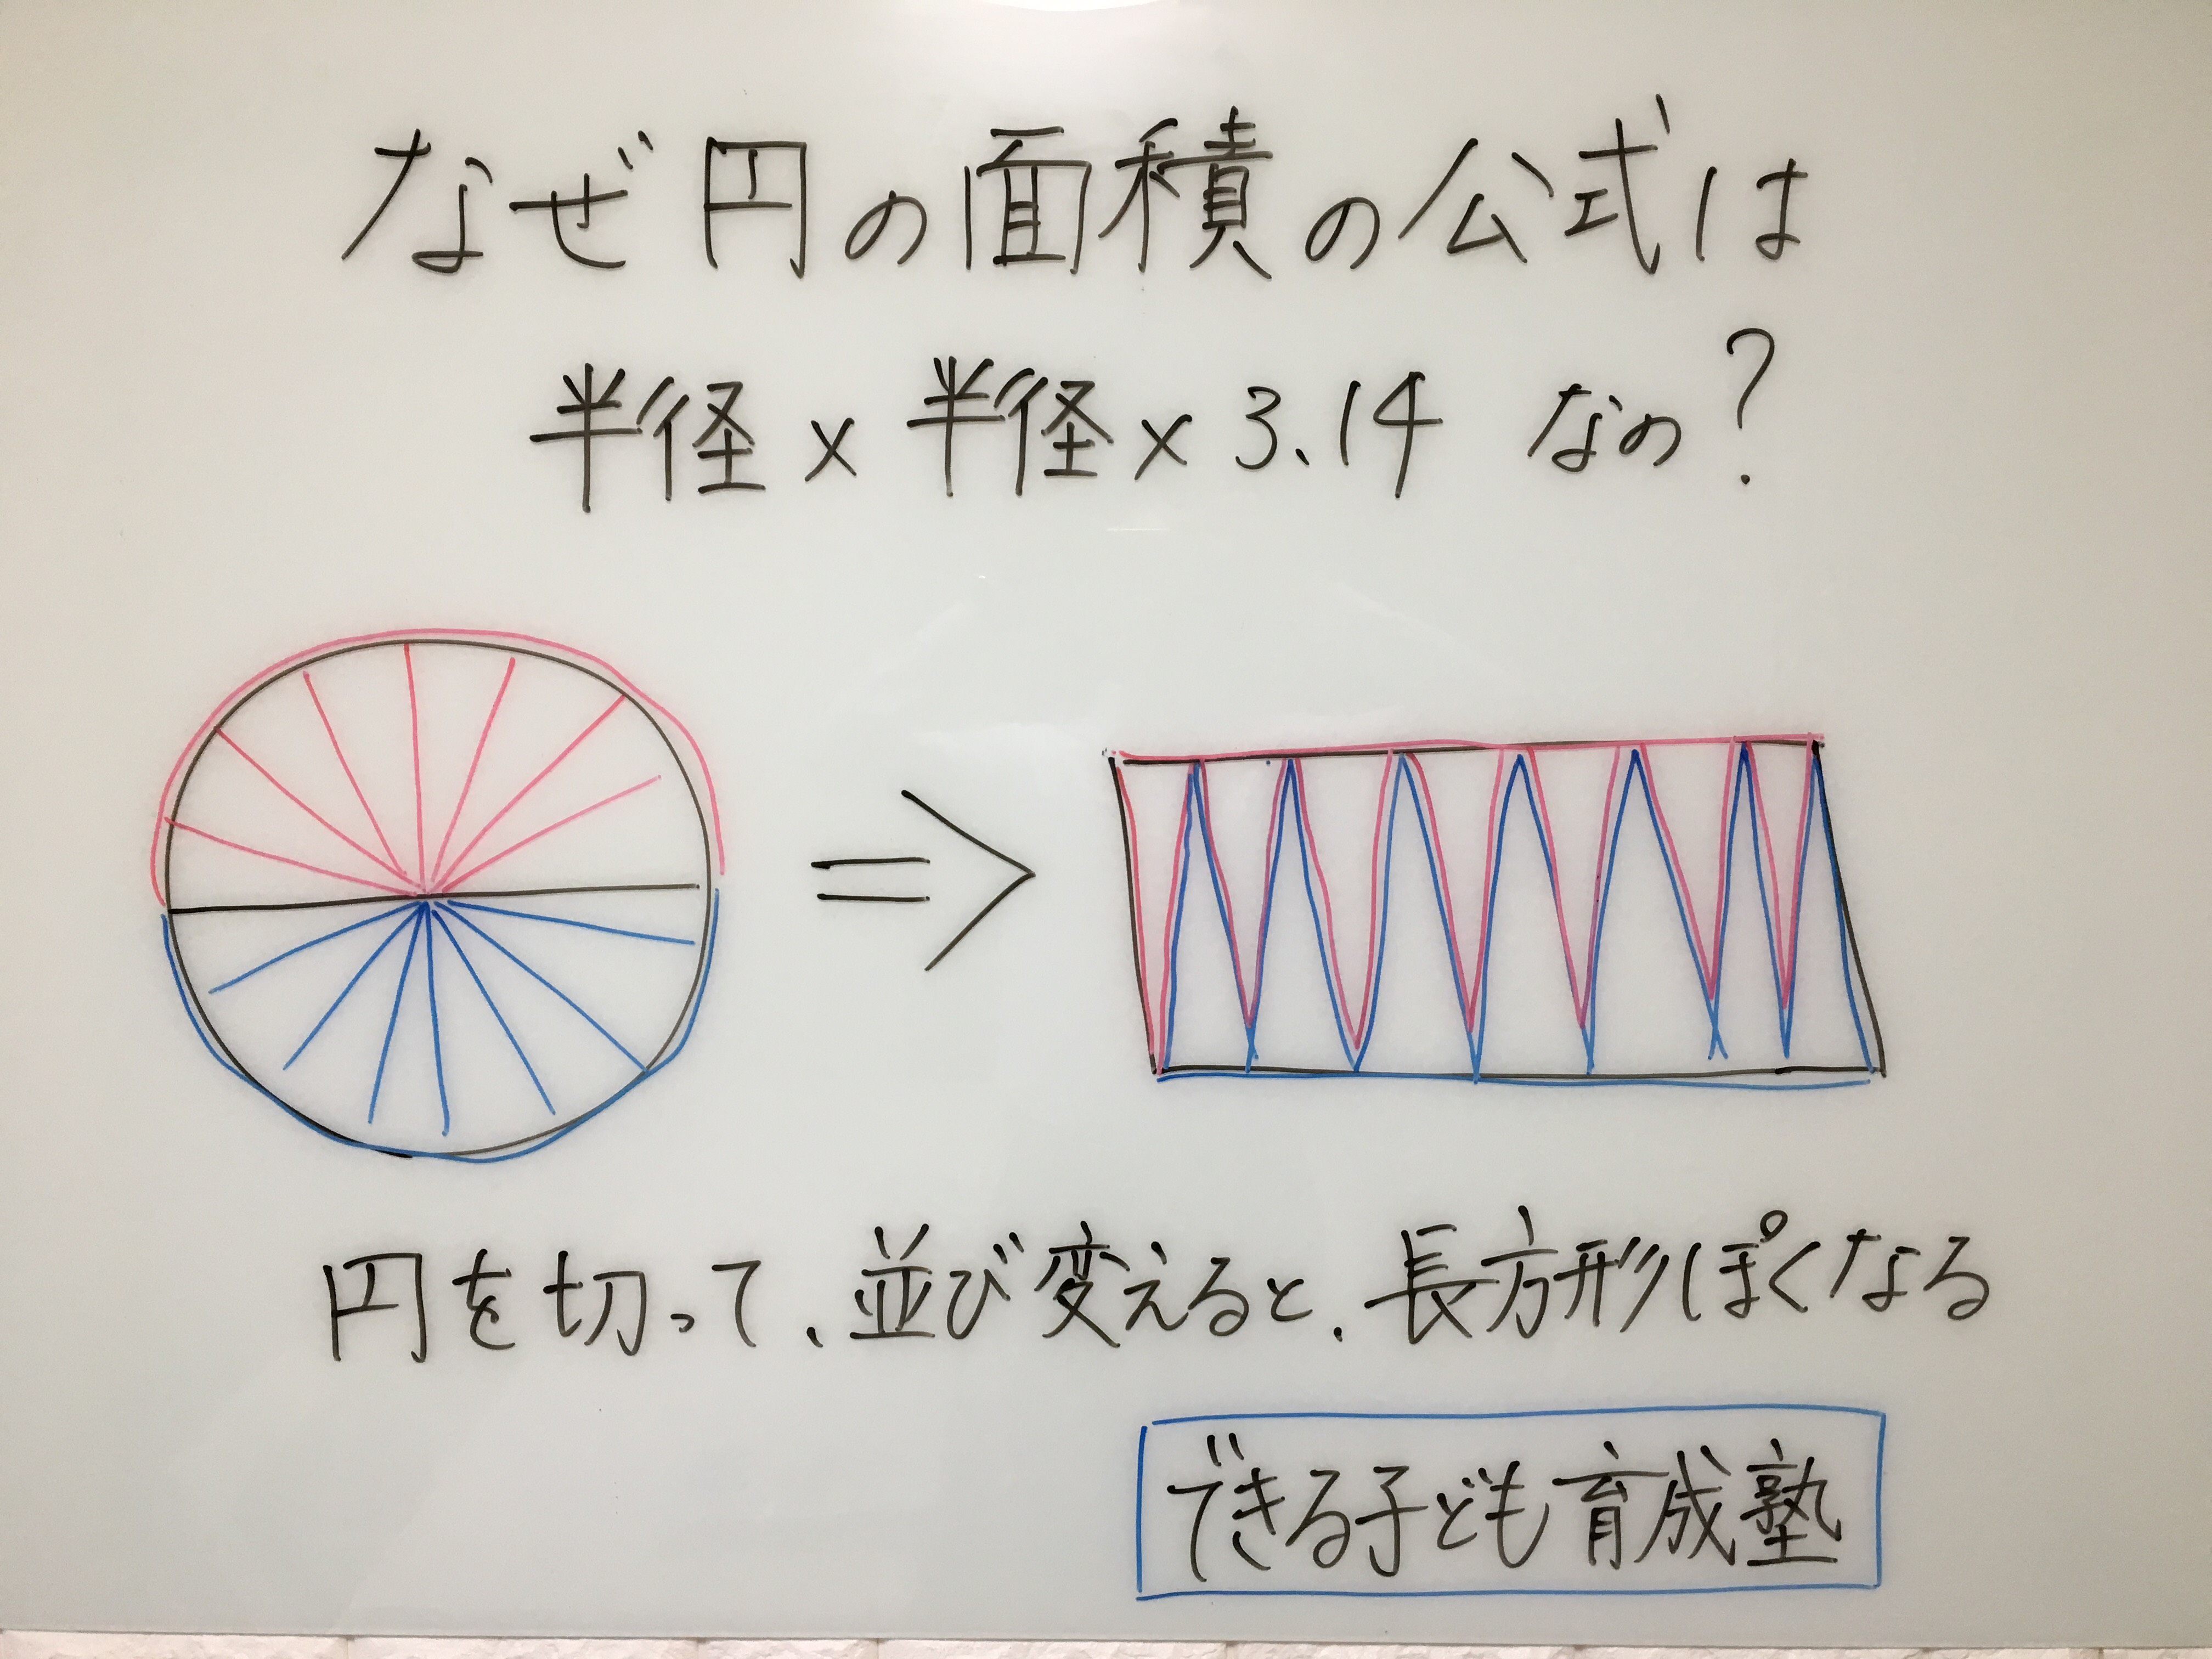 なぜ円の面積の公式は
半径×半径×3.14 なの?
円を切って、並び変えると、長方形ぽくなる
できる子ども育成塾